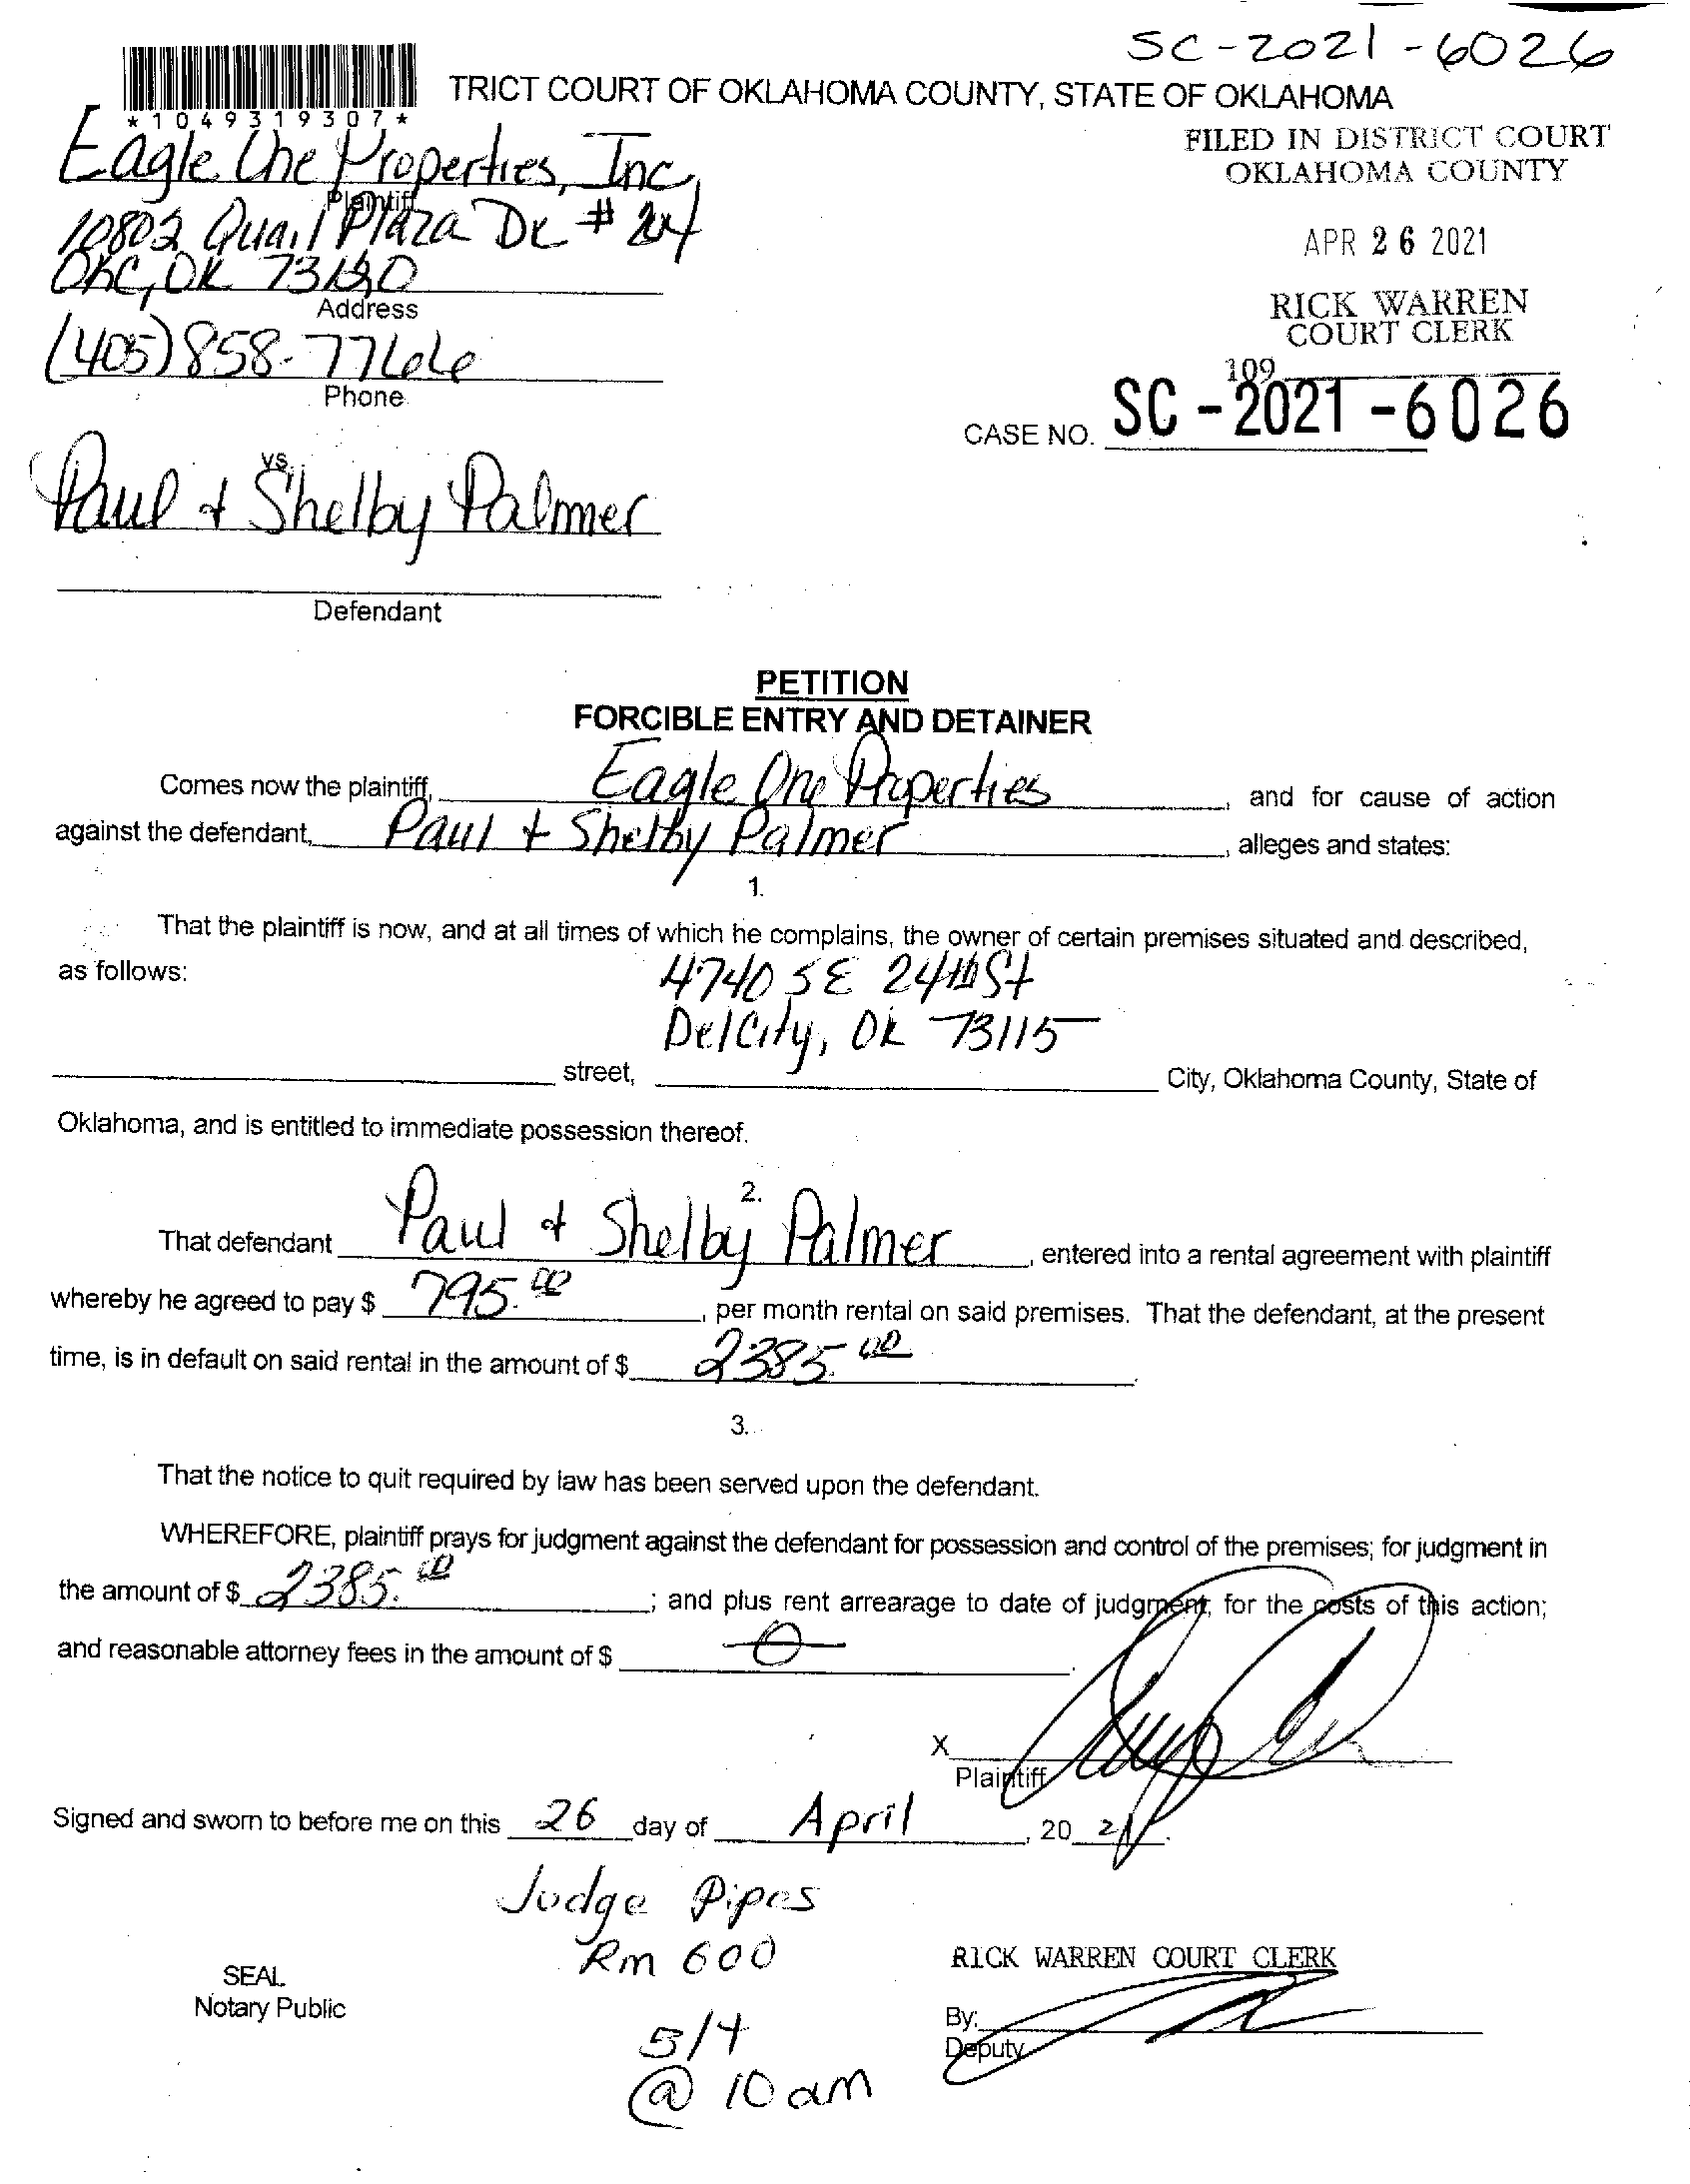 SC-2021-6026
TRICT COURT OF OKLAHOMA COUNTY, STATE OF OKLAHOMA
*1049319307*
FILED IN DISTRICT COURT
OKLAHOMA COUNTY
Eagle One Properties, Inc,
Plaintiff
10802 Quail Plaza Dr #
OKC, OK 73120
Address
APR 26 2021
RICK WARREN
COURT CLERK
(405) 858-7766
Phone
109
CASE NO. SC-2021-6026
vs.
Paul + Shelby Palmer
Defendant
PETITION
FORCIBLE ENTRY AND DETAINER
Comes now the plaintiff, Eagle One Properties, and for cause of action
against the defendant, Paul + Shelby Palmer, alleges and states:
1.
That the plaintiff is now, and at all times of which he complains, the owner of certain premises situated and described,
as follows: 4740 SE 24th St
Del City, OK 73115
street, City, Oklahoma County, State of
Oklahoma, and is entitled to immediate possession thereof.
2.
That defendant Paul + Shelby Palmer, entered into a rental agreement with plaintiff
whereby he agreed to pay $ 795.00, per month rental on said premises. That the defendant, at the present
time, is in default on said rental in the amount of $ 2385.00.
3.
That the notice to quit required by law has been served upon the defendant.
WHEREFORE, plaintiff prays for judgment against the defendant for possession and control of the premises; for judgment in
the amount of $ 2385.00; and plus rent arrearage to date of judgment, for the costs of this action;
and reasonable attorney fees in the amount of $ 0.
X
Plaintiff
Signed and sworn to before me on this 26 day of April, 2021.
Judge Pipes
Rm 600
SEAL
Notary Public
RICK WARREN COURT CLERK
By:
Deputy
5/4
@ 10 am